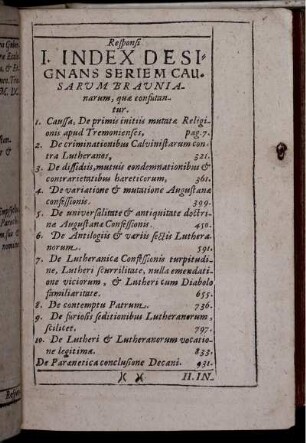 Responsi
I. INDEX DESI-
GNANS SERIEM CAU-
SARVM BRAVNIA-
narum, quæ confutan-
tur.
1. Caussa, De primis initiis mutatæ Religi-
onis apud Tremonienses, pag. 7.
2. De criminationibus Calvinistarum con-
tra Lutheranos, 321.
3. De dissidiis, mutuis condemnationibus &
contrarietatibus hæreticorum, 361.
4. De variatione & mutatione Augustanæ
confessionis. 399.
5. De universalitate & antiquitate doctri-
næ Augustanæ Confessionis. 450.
6. De Antilogiis & variis sectis Luthera-
norum. 591.
7. De Lutheranicæ Confessionis turpitudi-
ne, Lutheri scurrilitate, nulla emendati-
one viciorum, & Lutheri cum Diabolo
familiaritate. 655.
8. De contemptu Patrum. 736.
9. De furiosis seditionibus Lutheranorum,
scilicet. 797.
10. De Lutheri & Lutheranorum vocatio-
ne legitima. 833.
De Parænetica conclusione Decani. 931.
II. IN-